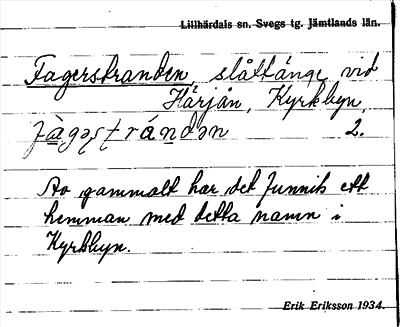 Lillhärdals sn. Svegs tg. Jämtlands län.
Fagerstranden, slåttänge vid
Härjån, Kyrkbyn.
2.
Av gammalt har det funnits ett
hemman med detta namn i
Kyrkbyn.
Erik Eriksson 1934.